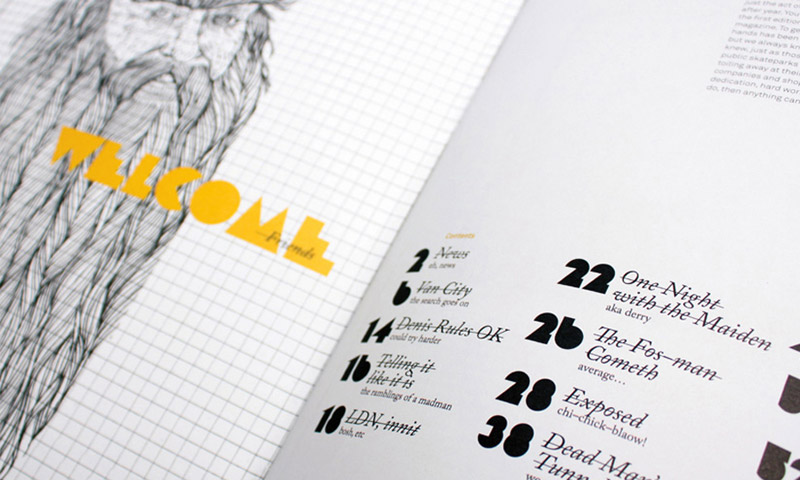 WELCOME
—Friends
just the act o
after year. You
the first edition
magazine. To ge
hands has been
but we always kn
knew, just as thos
public skateparks
toiling away at thei
companies and sho
dedication, hard wor
do, then anything can
Contents
2 News
oh, news
6 Van City
the search goes on
14 Denis Rules OK
could try harder
16 Telling it
like it is
the ramblings of a madman
18 LDN, innit
bosh, etc
22 One Night
with the Maiden
aka derry
26 The Fos-man
Cometh
average...
28 Exposed
chi-chick-blaow!
38 Dead Man's